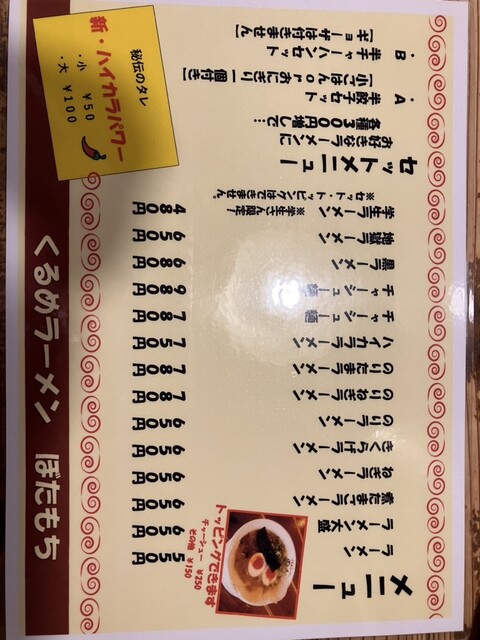 メニュー
ラーメン 550円
ラーメン大盛 650円
煮たまごラーメン 650円
ねぎラーメン 650円
きくらげラーメン 650円
のりラーメン 650円
のりねぎラーメン 780円
のりたまラーメン 780円
ハイカララーメン 750円
チャーシュー麺 780円
チャーシュー麺 980円
黒ラーメン 680円
地獄ラーメン 650円
学生ラーメン ※学生さん限定! 480円
※セット・トッピングはできません。
トッピングできます
チャーシュー ¥250
その他 ¥150
セットメニュー
お好きなラーメンに
各種300円増しで…
・A 半餃子セット
[小ごはん or おにぎり一個付き]
・B 半チャーハンセット
[ギョーザは付きません]
秘伝のタレ
新・ハイカラパワー
・小 ¥50
・大 ¥100
くるめラーメン ぼたもち